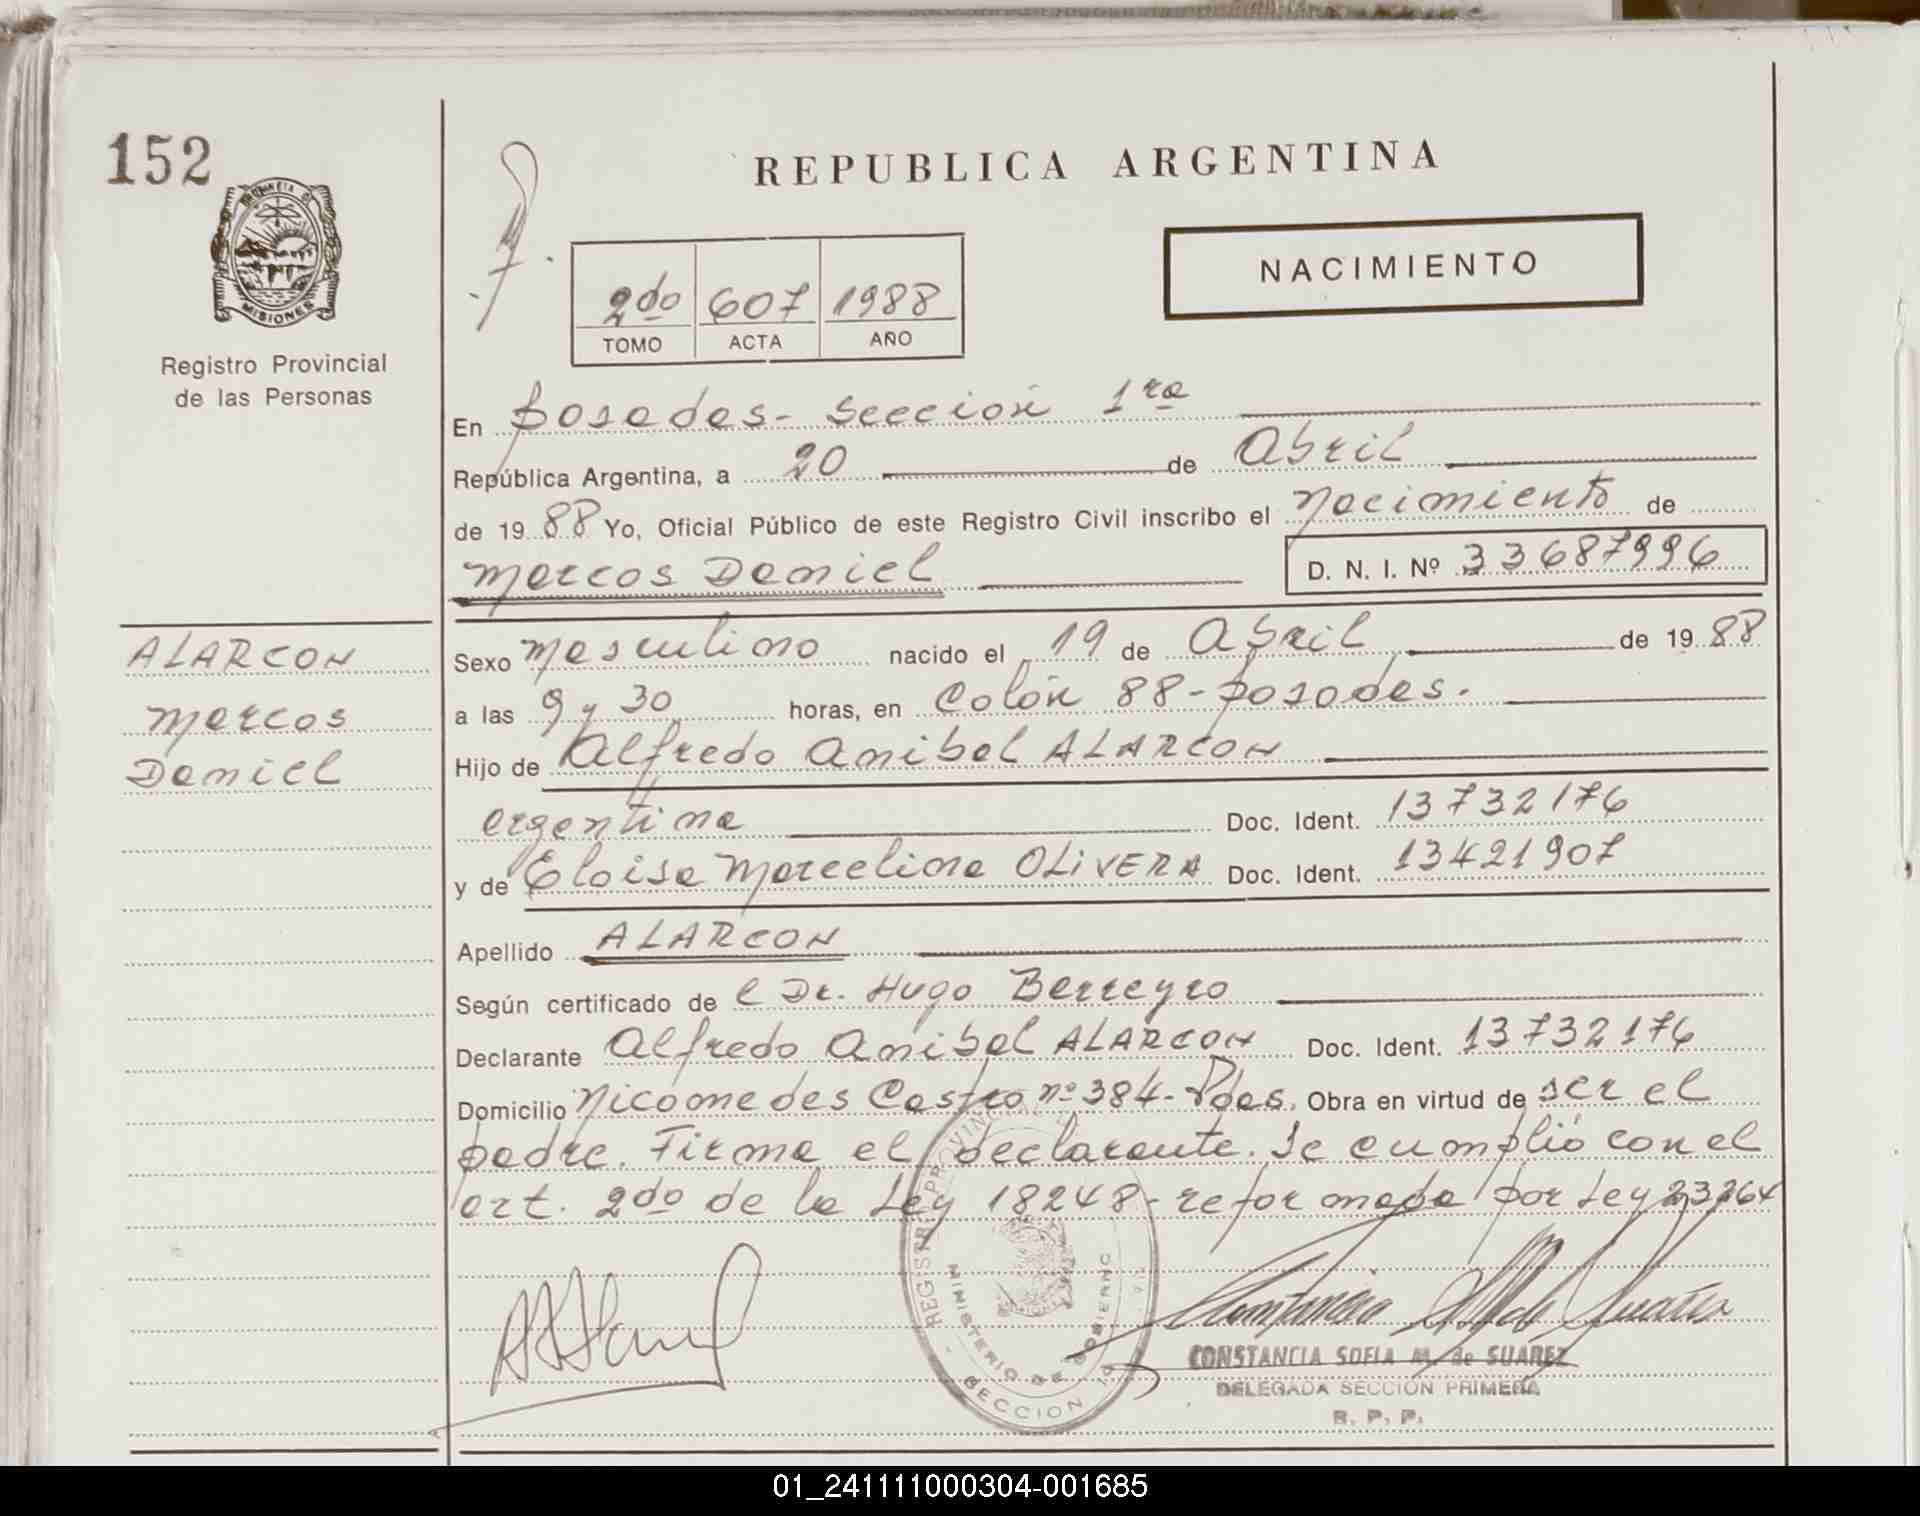 152
PROVINCIA DE
MISIONES
Registro Provincial
de las Personas
REPUBLICA ARGENTINA
NACIMIENTO
2do 607 1988
TOMO ACTA AÑO
En Posadas - Sección 1ra
República Argentina, a 20 de Abril
de 19 88 Yo, Oficial Público de este Registro Civil inscribo el Nacimiento de
Marcos Daniel D. N. I. Nº 33687996
ALARCON
Marcos
Daniel
Sexo Masculino nacido el 19 de Abril de 19 88
a las 9 y 30 horas, en Colón 88 - Posadas.
Hijo de Alfredo Anibal ALARCON
argentina Doc. Ident. 13732176
y de Eloisa Marcelina OLIVERA Doc. Ident. 13421907
Apellido ALARCON
Según certificado de l Dr. Hugo Berreyro
Declarante Alfredo Anibal ALARCON Doc. Ident. 13732176
Domicilio Nicómedes Castro nº 384 - Pdas. Obra en virtud de ser el
padre. Firma el declarante. Se cumplió con el
art. 2do de la Ley 18248 - reformada por Ley 23264
REGISTRO PROVINCIAL
MINISTERIO DE GOBIERNO
SECCION 1a
CONSTANCIA SOFIA M. de SUAREZ
DELEGADA SECCION PRIMERA
R. P. P.
01_241111000304-001685